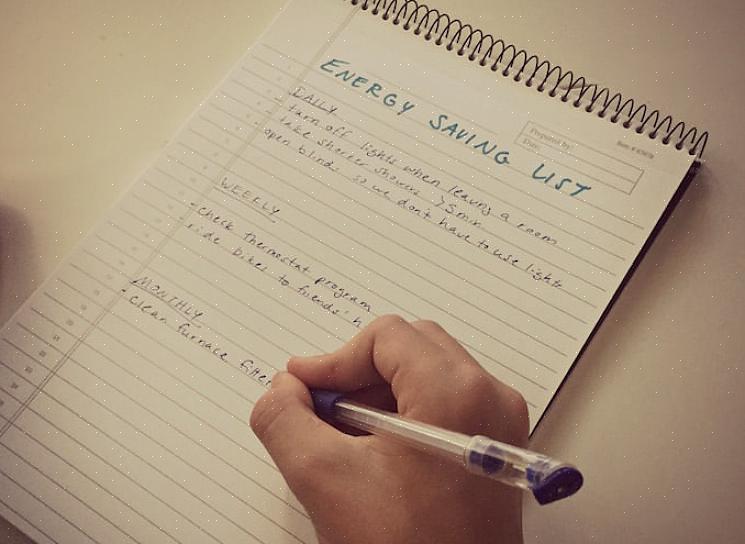 ENERGY SAVING LIST
Prepared by:
Date:
DAILY
- turn off lights when leaving a room
- take shorter showers >5min
- open blinds so we don't have to use lights
WEEKLY
- check thermostat program
- ride bikes to friends' h
MONTHLY
- clean furnace filter